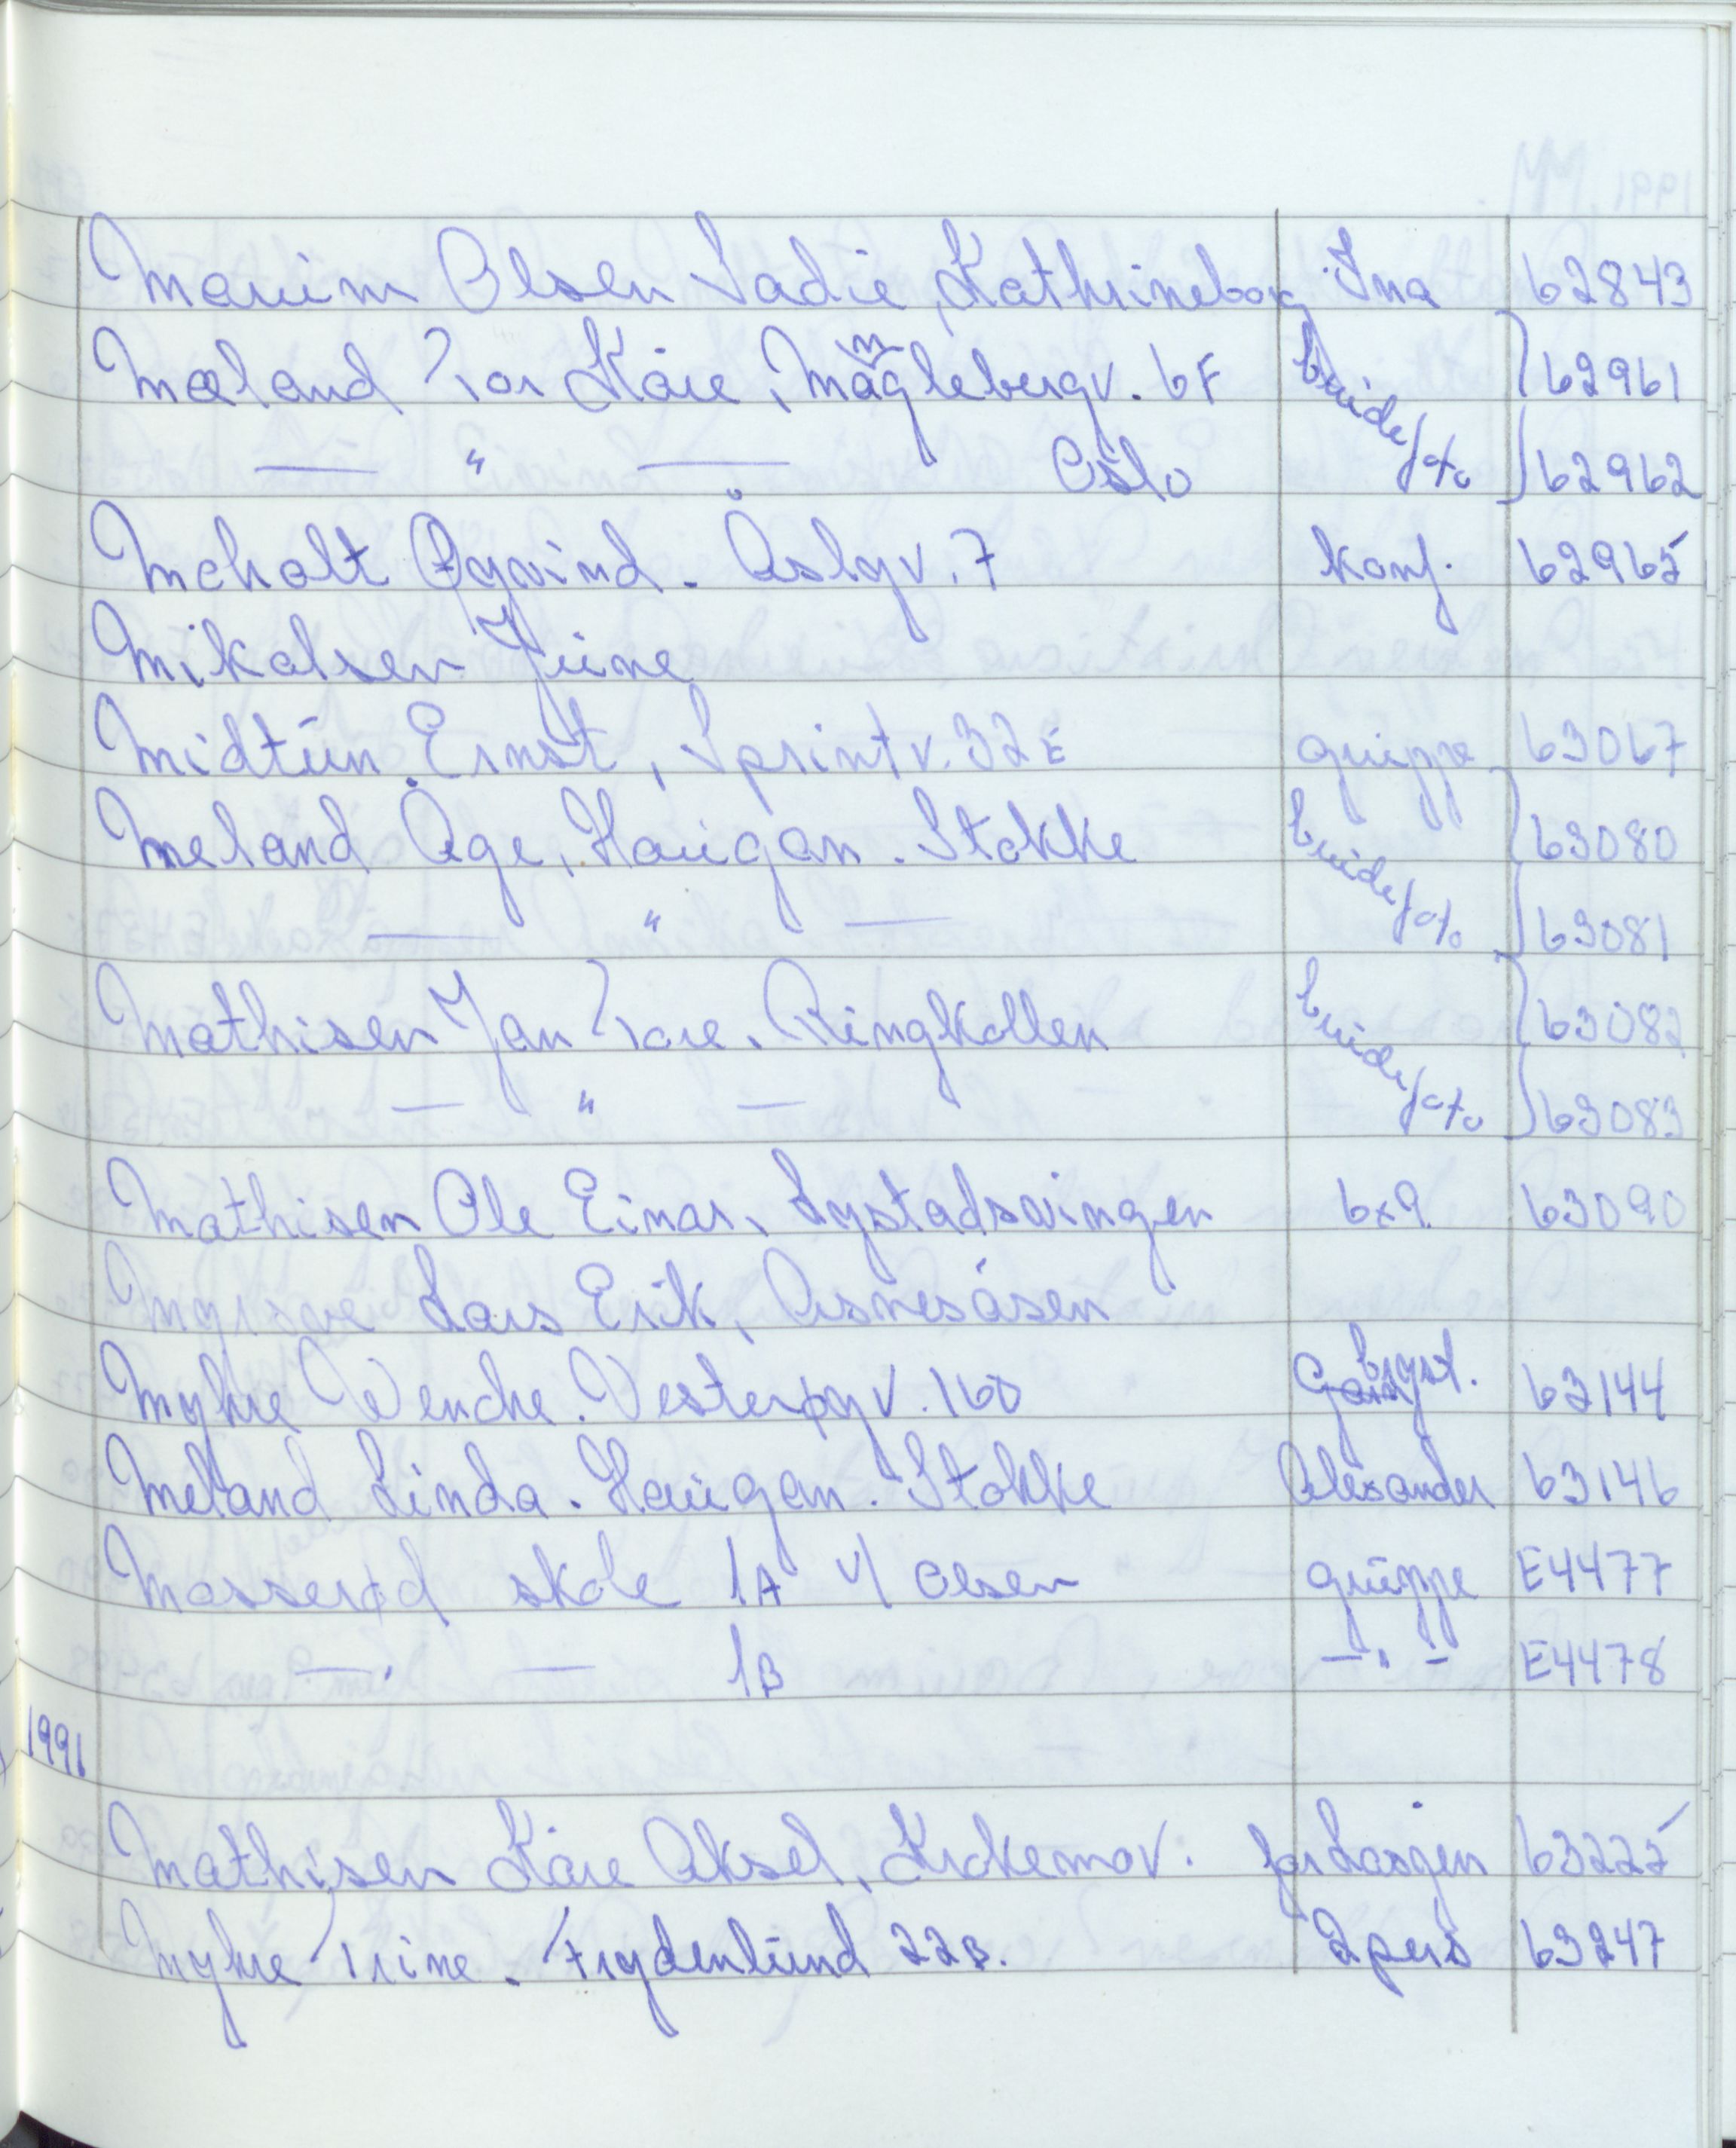 Olsen Sadie, Kathrineborg Ina 62843
Mæland Tor Kåre, Maglebergv. 6F brude 62961
— " — Oslo foto 62962
Meholt Øyvind. Åslyv. 7 konf. 62965
Mikalsen June
Midtun Ernst, Sprintv. 32E gruppe 63067
Meland Åge, Haugan. Stokke brude 63080
— " — foto 63081
Mathisen Jan Tore. Ringkollen brude 63082
— " — foto 63083
Mathisen Ole Einar, Lystadsvingen 6x9 63090
Lars Erik, Åsnesåsen
Myhre Wenche. Vesterøyv. 160 bryst. 63144
Meland Linda. Haugan. Stokke Alexander 63146
Mosserød skole 1A v/ Olsen gruppe E4477
— " — 1B — " — E4478
1991
Mathisen Kåre Aksel, Krokemov. 63225
Myhre Trine. Frydenlund 22B. 2 pers 63247